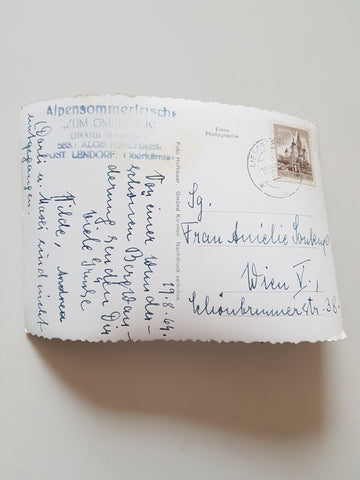 Alpensommerfrische
„ZUM GMEINECK"
POST LENDORF, Oberkärnten
Echte
Photographie
Foto Hofbauer, Gmünd Kärnten Nachdruck verboten
19.8.64.
Von einer wunder-
schönen Bergwan-
derung senden Dir
viele Grüsse
Hilde, Andrea
(Dodi u. Musi sind nicht
mitgegangen.
Sg.
Frau Amélie
Wien V.,
Schönbrunnerstr. 38